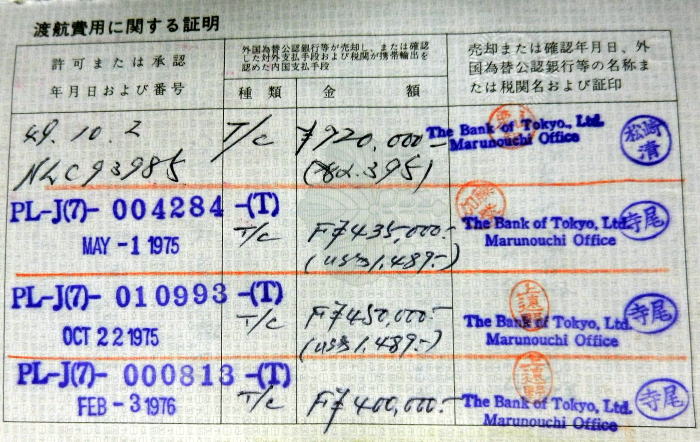 渡航費用に関する証明
許可または承認
年月日および番号
外国為替公認銀行等が売却し、または確認
した対外支払手段および税関が携帯輸出を
認めた内国支払手段
種類
金額
売却または確認年月日、外
国為替公認銀行等の名称ま
たは税関名および証印
49.10.2
T/c
¥920,000-
The Bank of Tokyo., Ltd.
Marunouchi Office
松崎
清
PL-J(7)- 004284 -(T)
MAY -1 1975
T/c
F¥435,000.-
(US$1,489.-)
The Bank of Tokyo, Ltd.
Marunouchi Office
寺尾
PL-J(7)- 010993 -(T)
OCT 22 1975
T/c
F¥450,000.-
(US$1,489.-)
The Bank of Tokyo, Ltd.
Marunouchi Office
寺尾
PL-J(7)- 000813 -(T)
FEB -3 1976
T/c
F¥400,000.-
The Bank of Tokyo, Ltd.
Marunouchi Office
寺尾